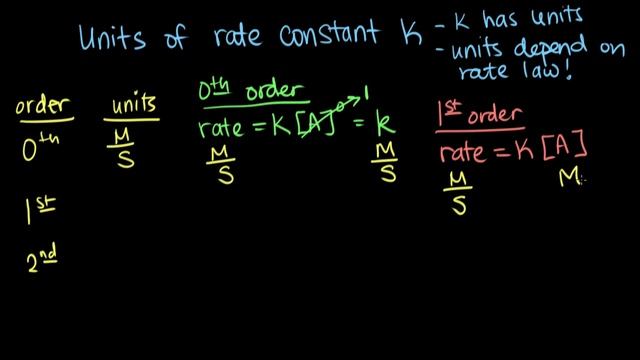 Units of rate constant K
- K has units
- units depend on
rate law!
order units
0th M/S
1st
2nd
0th order
rate = K [A]⁰ = k
1
M/S M/S
1st order
rate = K [A]
M/S M